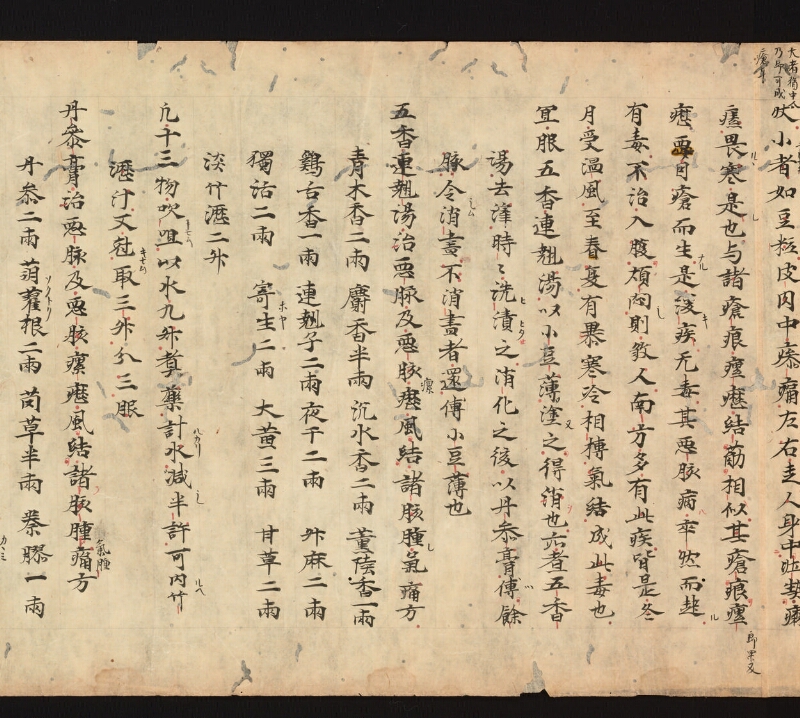 肤小者如豆粒皮肉中瘆痛左右走人身中
癮畏寒是也与諸瘡痕癉癧結筋相似其瘡痕癉
癧要自瘡而生是後疾无毒其惡脉病率然而起
有毒不治入腹煩悶則敎人南方多有此疾皆是冬
月受温風至春夏有暴寒冷相搏氣結成此毒也
宜服五香連翹湯以小豆薄塗之得消也
湯去滓時〻洗漬之消化之後以丹參膏傅餘
脉令消盡不消盡者還傅小豆薄也
五香連翹湯治惡脉及惡脉癧風結諸脉腫氣痛方
青木香二兩 麝香半兩 沉水香二兩 薫陸香一兩
鷄舌香一兩 連翹子二兩 夜干二兩 升麻二兩
獨活二兩 寄生二兩 大黄三兩 甘草二兩
淡竹瀝二升
凡十三物㕮咀以水九升煑藥計水減半許可内竹
瀝汁又尅取三升分三服
丹參膏治惡脉及惡脉瘰癧風結諸脉腫痛方
丹參二兩 蒴藋根二兩 茵草半兩 秦膠一兩